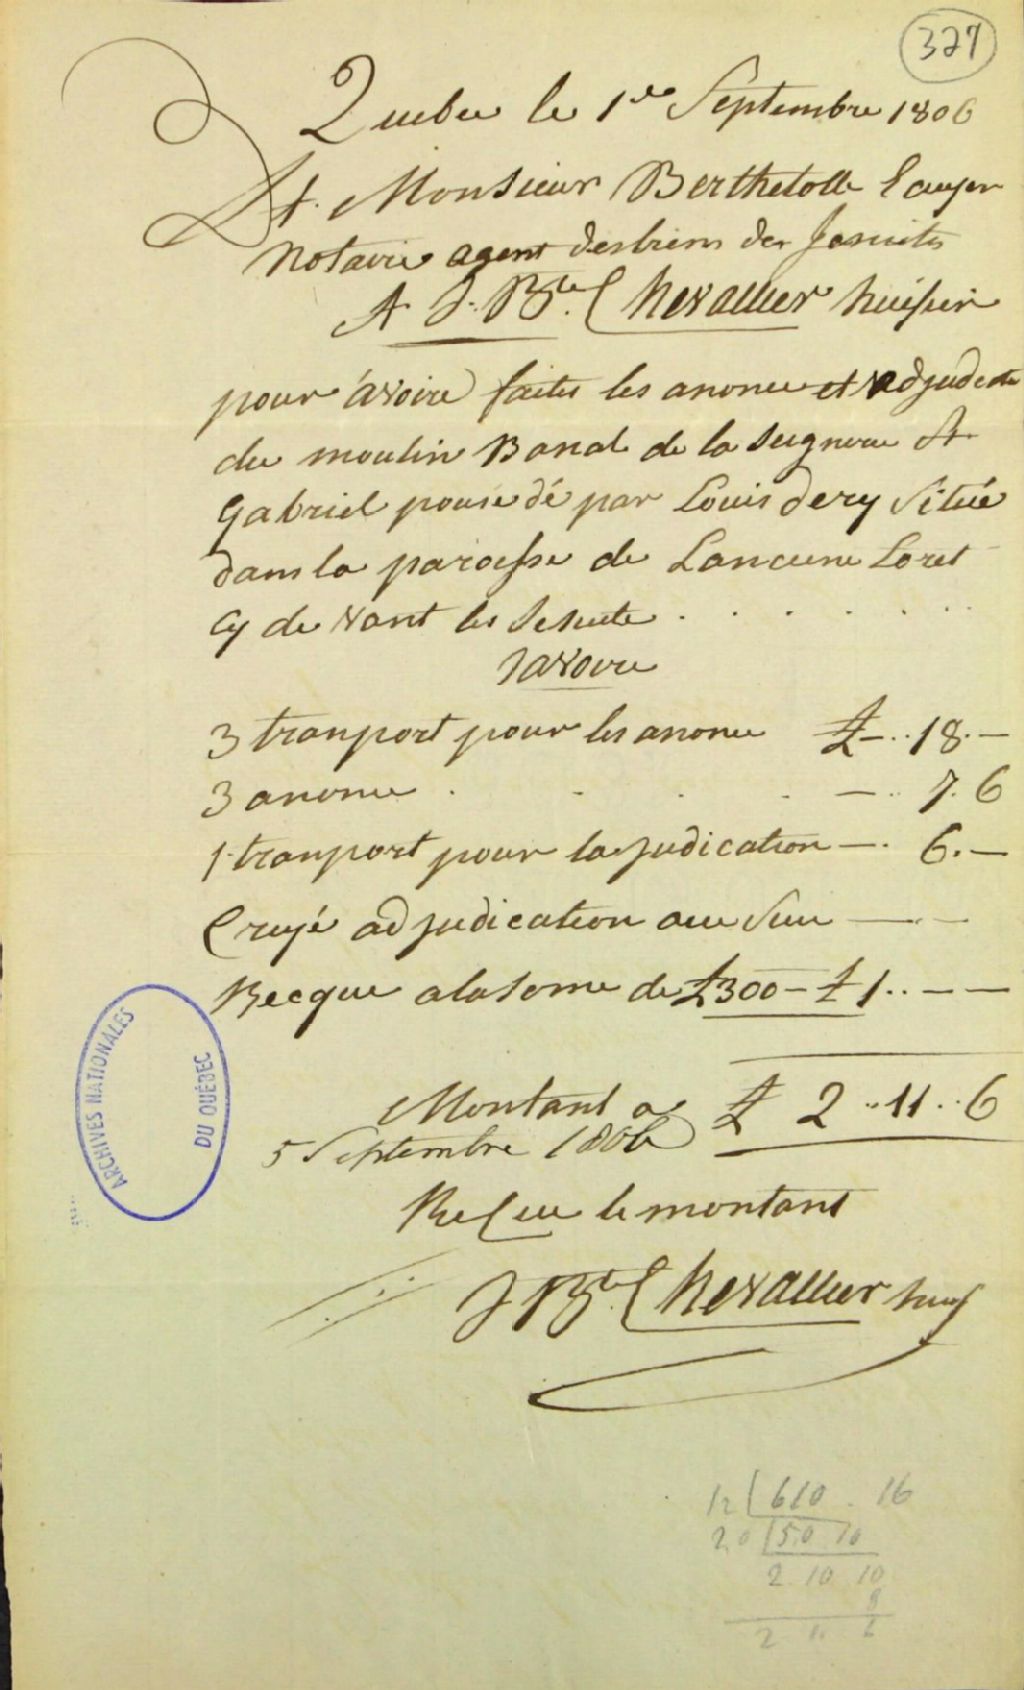 327
Quebec le 1re Septembre 1806
Monsieur Berthelotte Ecuyer
Notaire agent desbiens des Jesuites
A J. Bte Chevallier huissier
pour avoire faites les anonce et adjudecate
du moulin Banal de la Seigneurie St
Gabriel pousedé par Louis dery Située
dans la paroisse de Lancienne Loret
Cy de vant les Jesuite . . . . . .
Savoire
3 tranport pour les anonce £ - .. 18. -
3 anonce . . . . - .. 7. 6
1 tranport pour lajudication - . 6. -
Cruyé adjudication aux Sieur — . —
Becque alasome de £300 - £ 1 .. — —
Montant a £ 2 .. 11 .. 6
5 Septembre 1806
ReCeu le montant
J Bte Chevallier huis
ARCHIVES NATIONALES
DU QUÉBEC
12 610 . 16
2,0 5,0 10
2 10 10
8
2 11 6